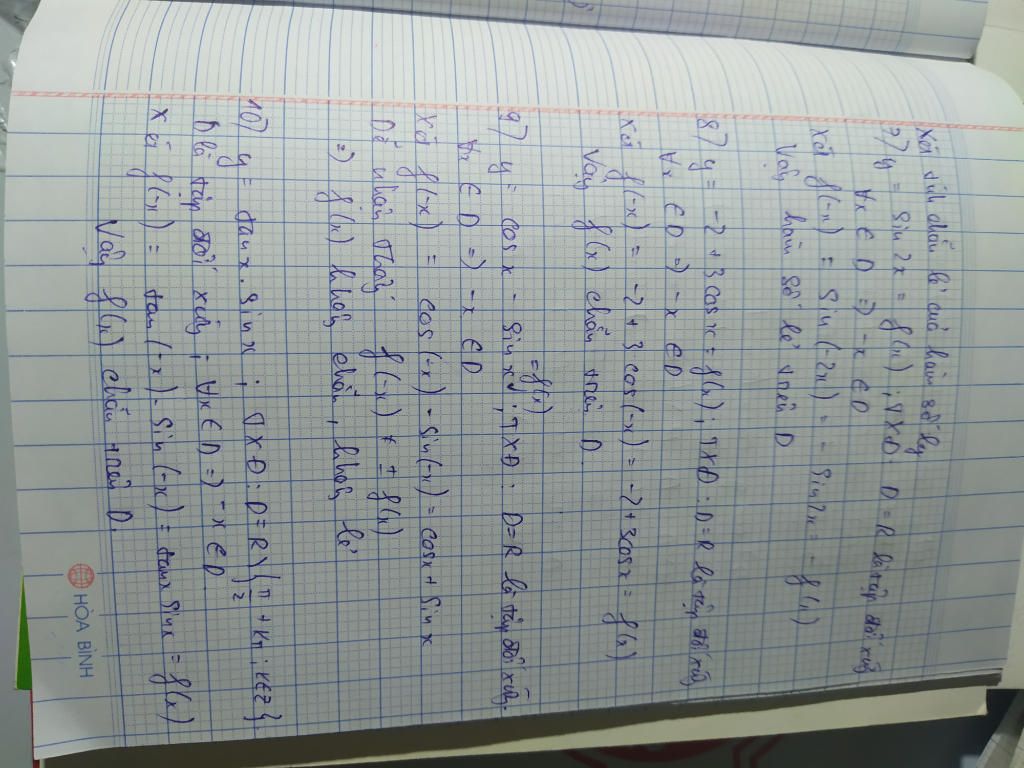 Xét tính chẵn lẻ của hàm số lg
7) y = sin 2x = f(x) ; TXĐ: D = R là tập đối xứng
∀x ∈ D => -x ∈ D
Xét f(-x) = sin(-2x) = - sin2x = - f(x)
Vậy hàm số lẻ trên D
8) y = -2 + 3cosx = f(x) ; TXĐ: D = R là tập đối xứng
∀x ∈ D => -x ∈ D
Xét f(-x) = -2 + 3 cos(-x) = -2 + 3cosx = f(x)
Vậy f(x) chẵn trên D
9) y = cosx - sinx = f(x) ; TXĐ: D = R là tập đối xứng.
∀x ∈ D => -x ∈ D
Xét f(-x) = cos(-x) - sin(-x) = cosx + sinx
Dễ nhận thấy f(-x) ≠ ± f(x)
=> f(x) không chẵn, không lẻ
10) y = tanx . sinx ; TXĐ: D = R \ { π/2 + kπ ; k∈Z }.
D là tập đối xứng ; ∀x ∈ D => -x ∈ D
Xét f(-x) = tan(-x) . sin(-x) = tanx sinx = f(x)
Vậy f(x) chẵn trên D.
HÒA BÌNH